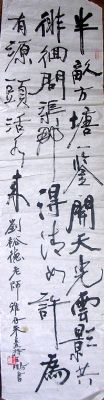 半畝方塘一鑒開天光雲影共
徘徊問渠那得清如許為
有源頭活水來 劉 老師